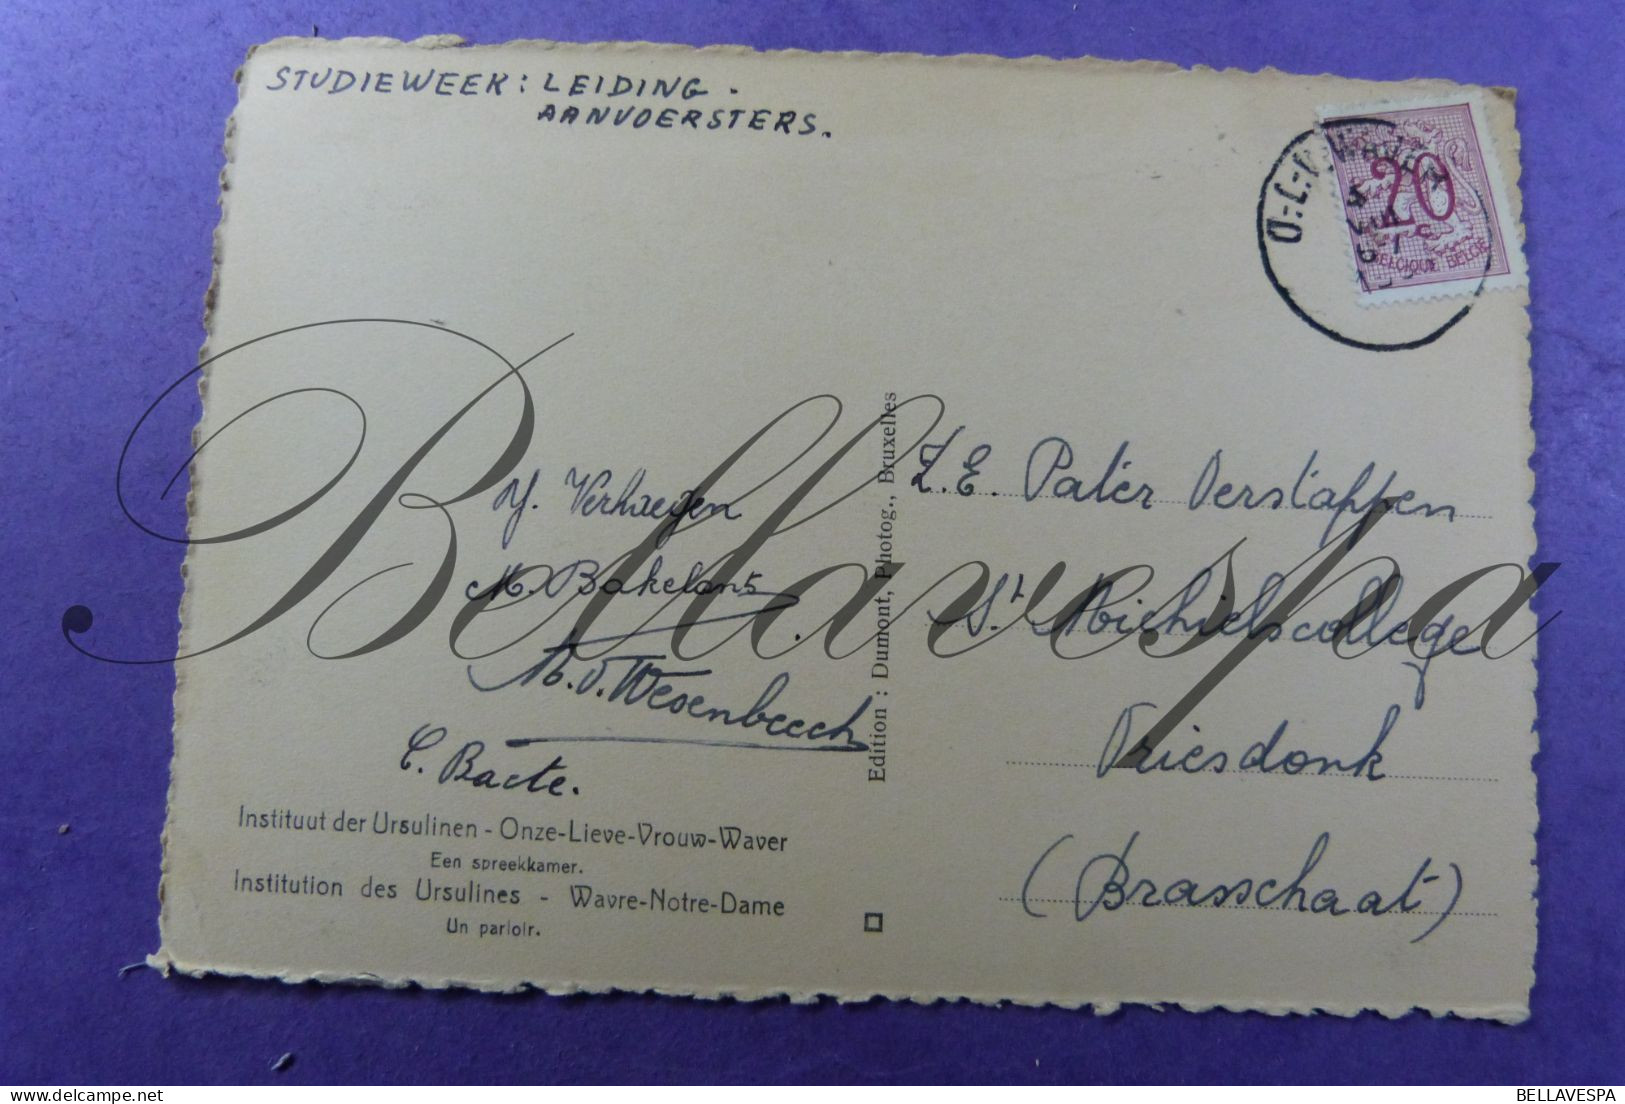 STUDIEWEEK: LEIDING.
AANVOERSTERS.
O.-L.-V.-WAVER
20
BELGIQUE BELGIE
Y. Verhaegen
M. Bakelants
M. v. Wesenbeeck
C. Bacte.
Instituut der Ursulinen - Onze-Lieve-Vrouw-Waver
Een spreekkamer.
Institution des Ursulines - Wavre-Notre-Dame
Un parloir.
Edition : Dumont, Photog., Bruxelles
Z. E. Pater Verstappen
St Michielscollege
Driesdonk
(Brasschaat)
Bellavespa
BELLAVESPA